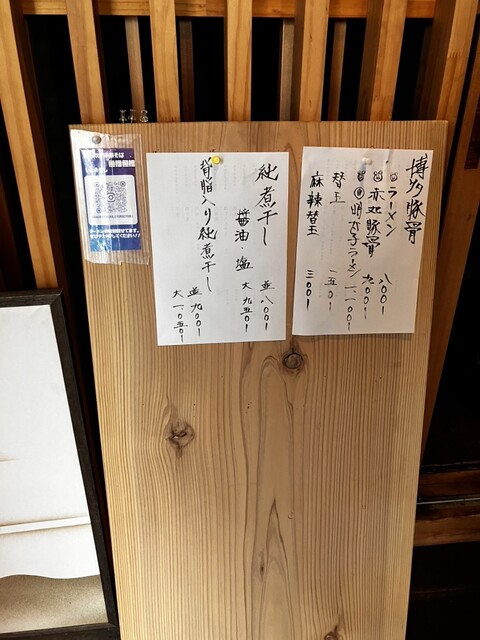 博多豚骨
ラーメン 八〇〇ー
赤丸豚骨 九〇〇ー
明太子ラーメン 一、一〇〇ー
替玉 一五〇ー
麻辣替玉 三〇〇ー
純煮干し
醤油・塩 並 八〇〇ー
大 九五〇ー
背脂入り純煮干し 並 九〇〇ー
大 一、〇五〇ー